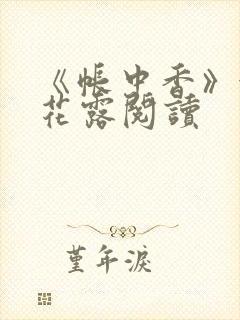 《帳中香》
花露閱讀
堇年淚